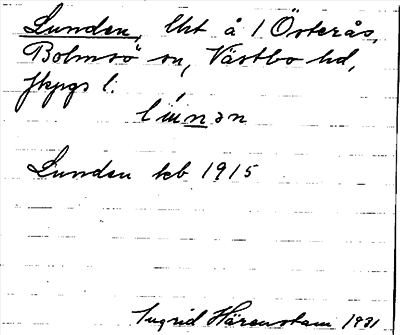 Lunden, lht å 1 Österås,
Bolmsö sn, Västbo hd,
Jkpgs l.
Lunden kb 1915
Ingrid Härenstam 1931